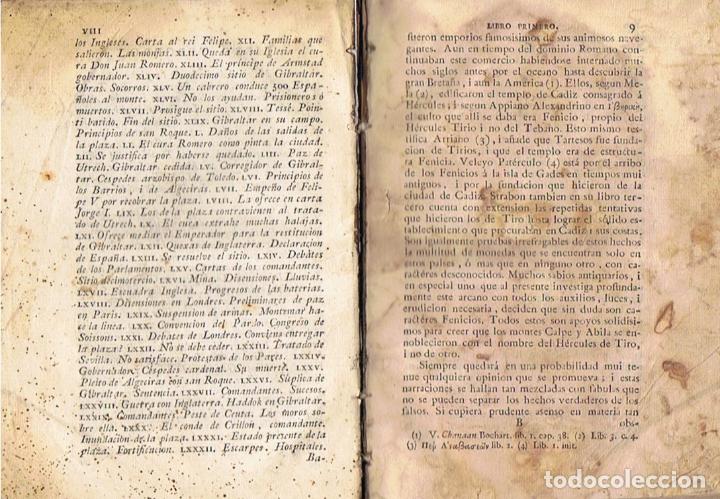 VIII
los Ingleses. Carta al rei Felipe. XLI. Familias que
salieron. Las monjas. XLII. Queda en su Iglesia el cu-
ra Don Juan Romero. XLIII. El príncipe de Armstad
gobernador. XLIV. Duodecimo sitio de Gibraltar.
Obras. Socorros. XLV. Un cabrero conduce 500 Espa-
ñoles al monte. XLVI. No los ayudan. Prisioneros ó
muertos. XLVII. Prosigue el sitio. XLVIII. Tessé. Poin-
ti batido. Fin del sitio. XLIX. Gibraltar en su campo.
Principios de san Roque. L. Daños de las salidas de
la plaza. LI. El cura Romero como pinta la ciudad.
LII. Se justifica por haberse quedado. LIII. Paz de
Utrech. Gibraltar cedida. LV. Corregidor de Gibral-
tar. Cespedes arzobispo de Toledo. LVI. Principios de
los Barrios, i de Algeciras. LVII. Empeño de Feli-
pe V por recobrar la plaza. LVIII. La ofrece en carta
Jorge I. LIX. Los de la plaza contravienen al trata-
do de Utrech. LX. El cura extrahe muchas halajas.
LXI. Ofrece mediar el Emperador para la restitucion
de Gibraltar. LXII. Quexas de Inglaterra. Declaracion
de España. LXIII. Se resuelve el sitio. LXIV. Debates
de los Parlamentos. LXV. Cartas de los comandantes.
Sitio decimotercio. LXVI. Mina. Disensiones. Lluvias.
LXVII. Escuadra Inglesa. Progresos de las baterias.
LXVIII. Disensiones en Londres. Preliminares de paz
en Paris. LXIX. Suspension de armas. Montemar ha-
ce la linea. LXX. Convencion del Pardo. Congreso de
Soissons. LXXI. Debates de Londres. Conviene entregar
la plaza? LXXII. No se debe ceder. LXXIII. Tratado de
Sevilla. No satisface. Protestas de los Pares. LXXIV.
Gobernador Cespedes cardenal. Su muerte. LXXV.
Pleito de Algeciras con san Roque. LXXVI. Súplica de
Gibraltar. Sentencia. LXXVII. Comandantes. Sucesos.
LXXVIII. Guerra con Inglaterra. Haddok en Gibraltar.
LXXIX. Comandantes. Peste de Ceuta. Los moros so-
bre ella. LXXX. El conde de Crillon, comandante.
Inundacion de la plaza. LXXXI. Estado presente de la
plaza. Fortificacion. LXXXII. Escarpes. Hospitales.
Ba-
LIBRO PRIMERO. 9
fueron emporios famosisimos de sus animosos nave-
gantes. Aun en tiempo del dominio Romano con-
tinuaban este comercio habiendose internado mu-
chos siglos antes por el oceano hasta descubrir la
gran Bretaña, i aun la América (1). Ellos, segun Me-
la (2), edificaron el templo de Cadiz consagrado á
Hércules, i segun Appiano Alexandrino en
el culto que alli se daba era Fenicio, propio del
Hércules Tirio i no del Tebano. Esto mismo tes-
tifica Arriano (3), i añade que Tarteso fue funda-
cion de Tirios, i que el templo era de estructu-
ra Fenicia. Veleyo Patérculo (4) está por el arribo
de los Fenicios á la isla de Gades en tiempos mui
antiguos, i por la fundacion que hicieron de la
ciudad de Cadiz. Strabon tambien en su libro ter-
cero cuenta con extension las repetidas tentativas
que hicieron los de Tiro hasta lograr el sólido es-
tablecimiento que procuraban en Cadiz i sus costas.
Son igualmente pruebas irrefragables de estos hechos
la multitud de monedas que se encuentran solo en
estos países, ó mas que en ninguno otro, con ca-
ractéres desconocidos. Muchos sabios antiquarios, i
en especial uno que al presente investiga profunda-
mente este arcano con todos los auxilios, luces, i
erudicion necesaria, deciden que sin duda son ca-
ractéres Fenicios. Todos estos son apoyos solidisi-
mos para creer que los montes Calpe y Abila se en-
noblecieron con el nombre del Hércules de Tiro,
i no de otro.
Siempre quedará en una probabilidad mui te-
nue qualquiera opinion que se promueva; i estas
narraciones se hallan tan mezcladas con fabulas que
no se pueden separar los hechos verdaderos de los
falsos. Si cupiera prudente asenso en materia tan
B obs-
(1) V. Chanaan Bochart. lib. 1. cap. 38. (2) Lib. 3. c. 4.
(3) lib. 2. (4) Lib. 1. init.
todocoleccion